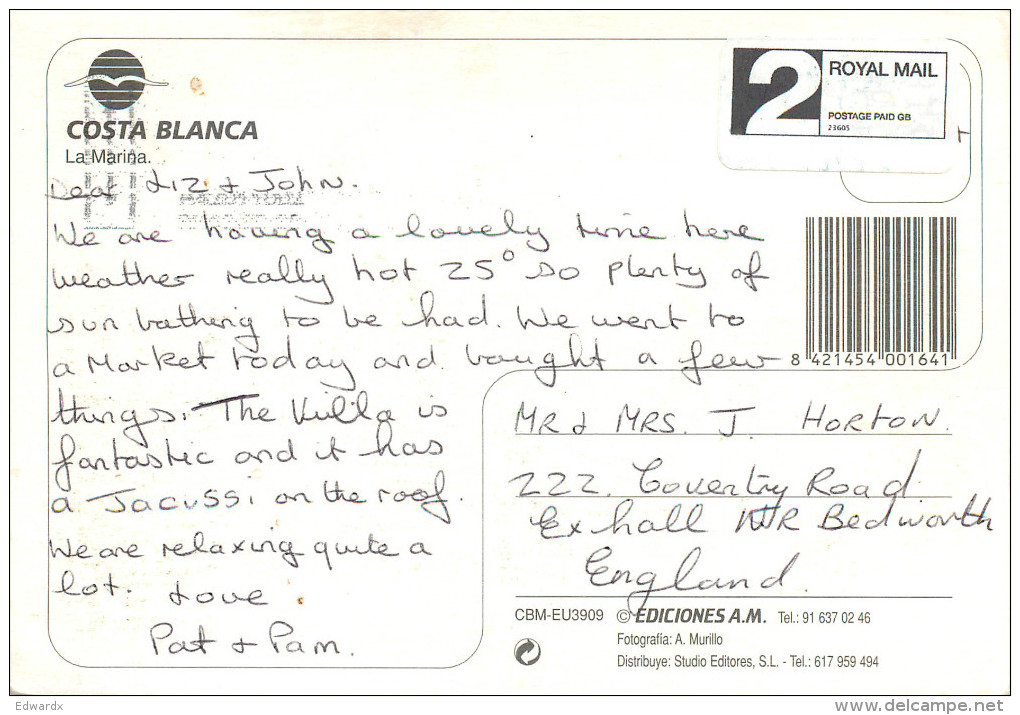 COSTA BLANCA
La Marina.
Dear Liz + John.
We are having a lovely time here
weather really hot 25° so plenty of
sun bathing to be had. We went to
a Market today and bought a few
things. The Villa is
fantastic and it has
a Jacussi on the roof.
We are relaxing quite a
lot. Love.
Pat + Pam.
2
ROYAL MAIL
POSTAGE PAID GB
23605
8 421454 001641
MR & MRS. J. HORTON.
222. Coventry Road
Exhall NR Bedworth
England.
CBM-EU3909 © EDICIONES A.M. Tel.: 91 637 02 46
Fotografía: A. Murillo
Distribuye: Studio Editores, S.L. - Tel.: 617 959 494
Edwardx
www.delcampe.net